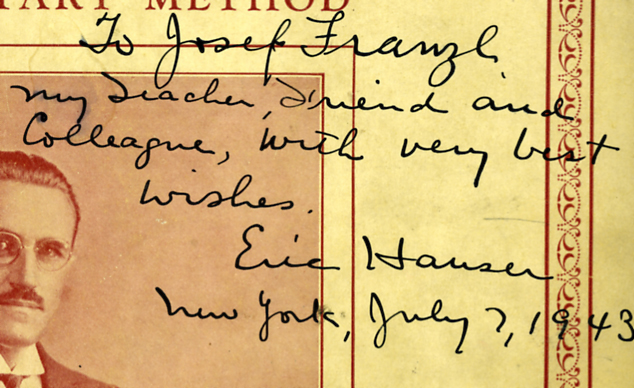 METHOD
To Josef Franzl
my Teacher, Friend and
Colleague, with very best
wishes.
Eric Hauser
New York, July 7, 1943